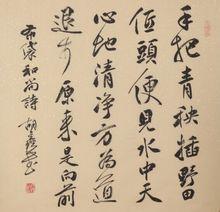 手把青秧插野田
低頭便見水中天
心地清净方為道
退步原來是向前
布袋和尚詩 胡